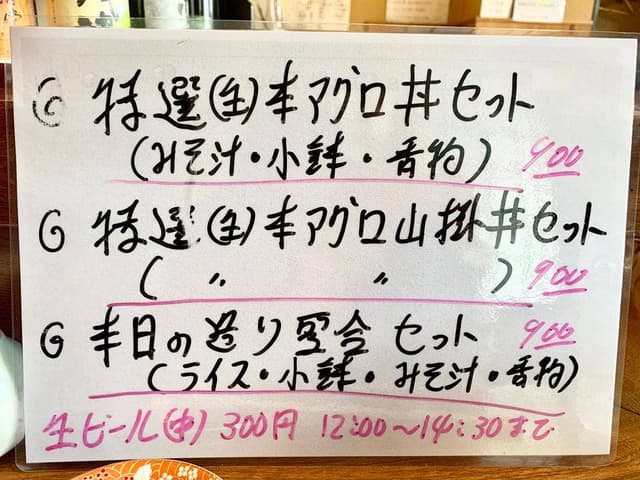 ◎ 特選(生)本マグロ丼セット
(みそ汁・小鉢・香物) 900
○ 特選(生)本マグロ山掛丼セット
( 〃 〃 ) 900
○ 本日の造り盛合セット 900
(ライス・小鉢・みそ汁・香物)
生ビール(中) 300円 12:00~14:30まで